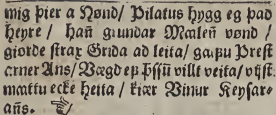 mig þier a Hønd/ Pilatus hygg eg þad
heyre/ hañ grundar Mæleñ vønd/
giørde strax Grida ad leita/ gaf þu Prest
arner Ans/ Vægd eþ þssū villt veita/ vijst
mattu ecke heita/ kiær Vinur Keysar-
añs.